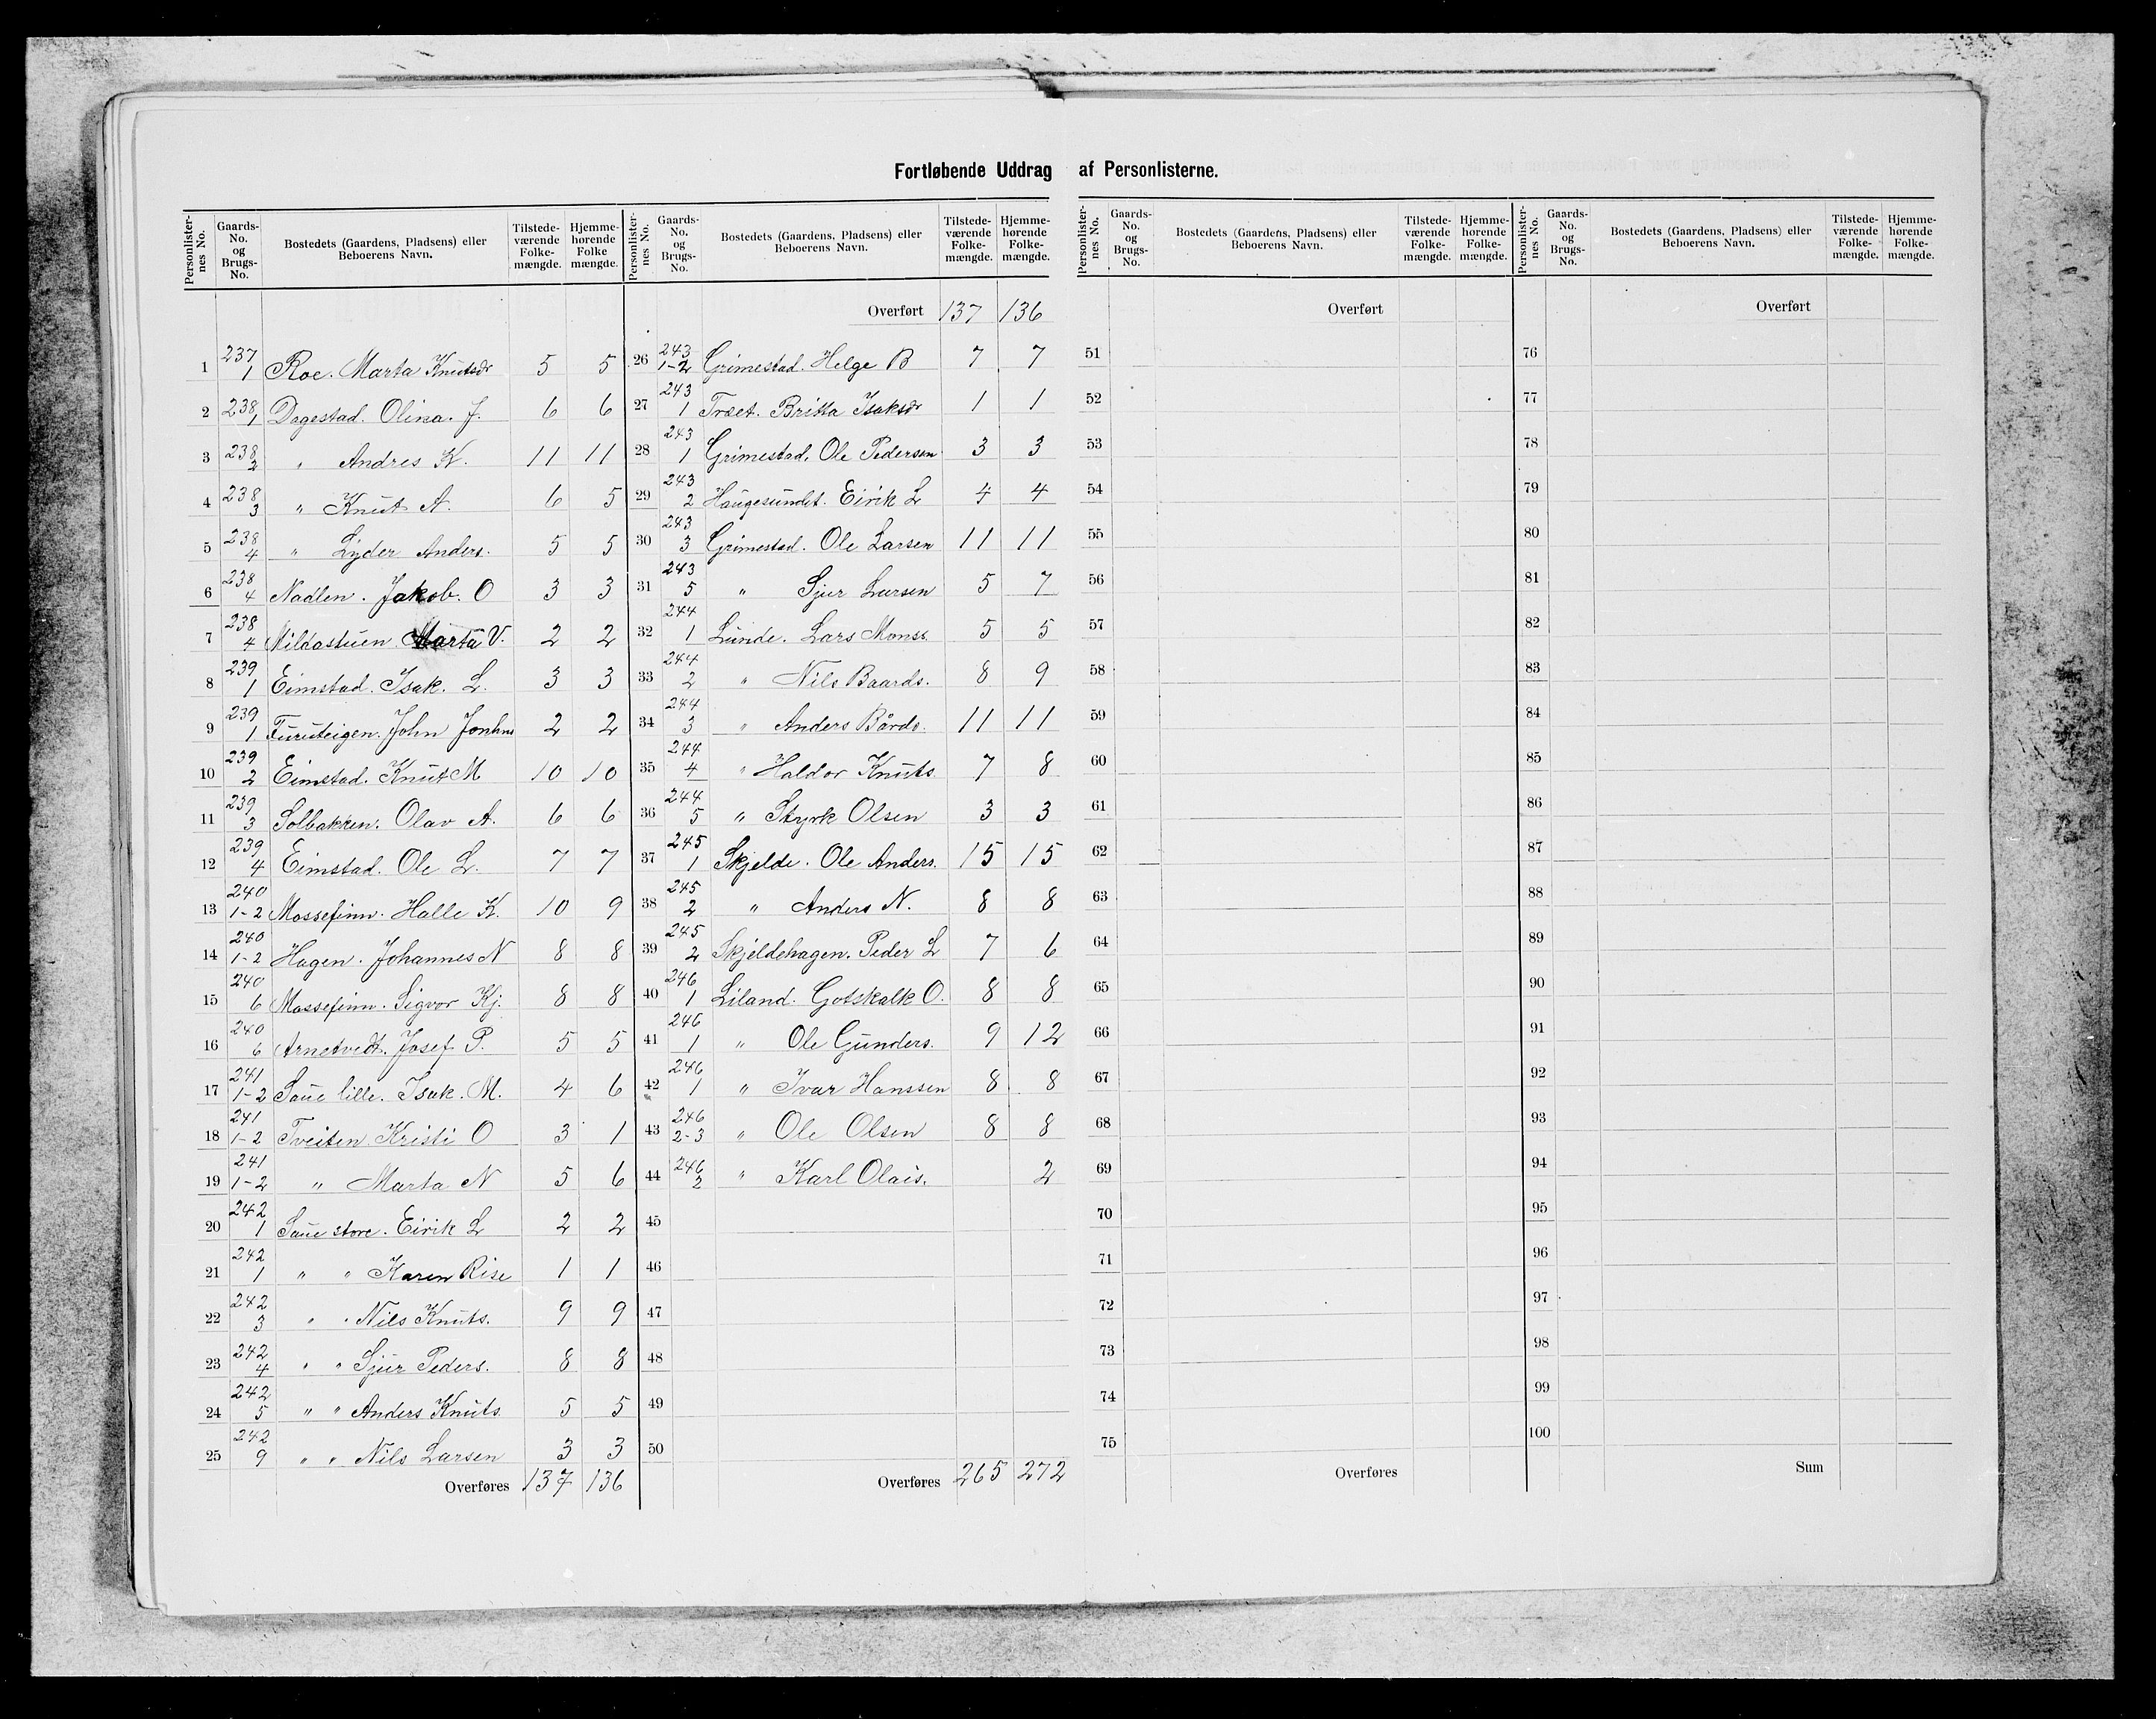 Fortløbende Uddrag af Personlisterne.
Personlisternes No. Gaards-No. og Brugs-No. Bostedets (Gaardens, Pladsens) eller Beboerens Navn. Tilstedeværende Folkemængde. Hjemmehørende Folke mængde.
1 237 1 Roe. Marta Knutsdr 5 5
2 238 1 Dagestad. Olina. J. 6 6
3 238 2 " Andres K. 11 11
4 238 3 " Knut A. 6 5
5 238 4 " Lyder Anders. 5 5
6 238 4 Nadlen. Jakob. O 3 3
7 238 4 Mildastuen Marta V. 2 2
8 239 1 Eimstad. Isak. L. 3 3
9 239 1 Furuteigen. John 2 2
10 239 2 Eimstad. Knut M 10 10
11 239 3 Solbakken. Olav A. 6 6
12 239 4 Eimstad. Ole L. 7 7
13 240 1-2 Mossefinn. Halle K. 10 9
14 240 1-2 Hagen. Johannes N 8 8
15 240 6 Mossefinn. Sigvor Kj. 8 8
16 240 6 Arnetvedt. Josef P. 5 5
17 241 1-2 Saue lille. Isak. M. 4 6
18 241 1-2 Tveiten. Kristi O 3 1
19 241 1-2 " Marta N 5 6
20 242 1 Saue store. Eirik L 2 2
21 242 1 " " Karen Rise 1 1
22 242 3 " " Nils Knuts. 9 9
23 242 4 " " Sjur Peders. 8 8
24 242 5 " " Anders Knuts. 5 5
25 242 9 " " Nils Larsen 3 3
Overføres 137 136
Personlisternes No. Gaards-No. og Brugs-No. Bostedets (Gaardens, Pladsens) eller Beboerens Navn. Tilstedeværende Folkemængde. Hjemmehørende Folkemængde.
Overført 137 136
26 243 1-2 Grimestad. Helge B 7 7
27 243 1 Træet. Britta Isaksdr 1 1
28 243 1 Grimestad. Ole Pedersen 3 3
29 243 2 Haugesundet. Eirik L 4 4
30 243 3 Grimestad. Ole Larsen 11 11
31 243 5 " Sjur Larsen 5 7
32 244 1 Lunde. Lars Monss. 5 5
33 244 2 " Nils Baards. 8 9
34 244 3 " Anders Bårds. 11 11
35 244 4 " Haldor Knuts 7 8
36 244 5 " Styrk Olsen 3 3
37 245 1 Skjelde. Ole Anders. 15 15
38 245 2 " Anders N. 8 8
39 245 2 Skjeldehagen. Peder L 7 6
40 246 1 Liland. Gotskalk O. 8 8
41 246 1 " Ole Gunders. 9 12
42 246 1 " Ivar Hanssen 8 8
43 246 2-3 " Ole Olsen 8 8
44 246 2 " Karl Olais. 2
45
46
47
48
49
50
Overføres 265 272
Personlisternes No. Gaards-No. og Brugs-No. Bostedets (Gaardens, Pladsens) eller Beboerens Navn. Tilstedeværende Folkemængde. Hjemmehørende Folkemængde.
Overført
51
52
53
54
55
56
57
58
59
60
61
62
63
64
65
66
67
68
69
70
71
72
73
74
75
Overføres
Personlisternes No. Gaards-No. og Brugs-No. Bostedets (Gaardens, Pladsens) eller Beboerens Navn. Tilstedeværende Folkemængde. Hjemmehørende Folkemængde.
Overført
76
77
78
79
80
81
82
83
84
85
86
87
88
89
90
91
92
93
94
95
96
97
98
99
100
Sum